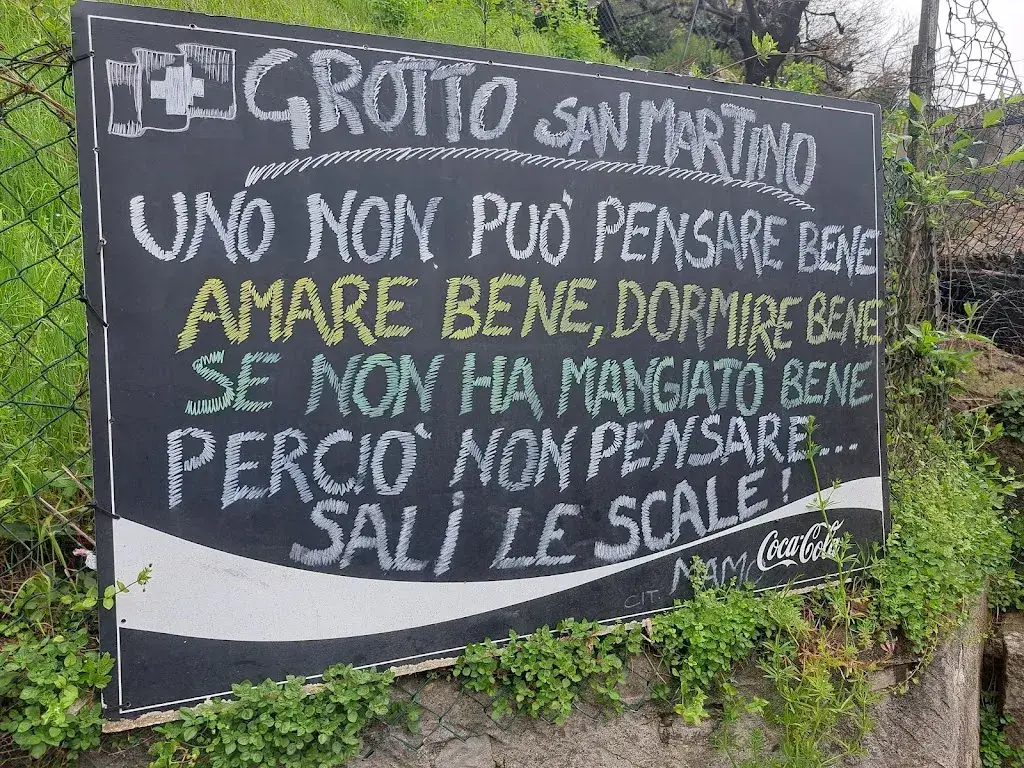 GROTTO SAN MARTINO
UNO NON PUÒ PENSARE BENE
AMARE BENE, DORMIRE BENE
SE NON HA MANGIATO BENE
PERCIO' NON PENSARE...
SALI LE SCALE!
Coca-Cola
CIT. NAMO